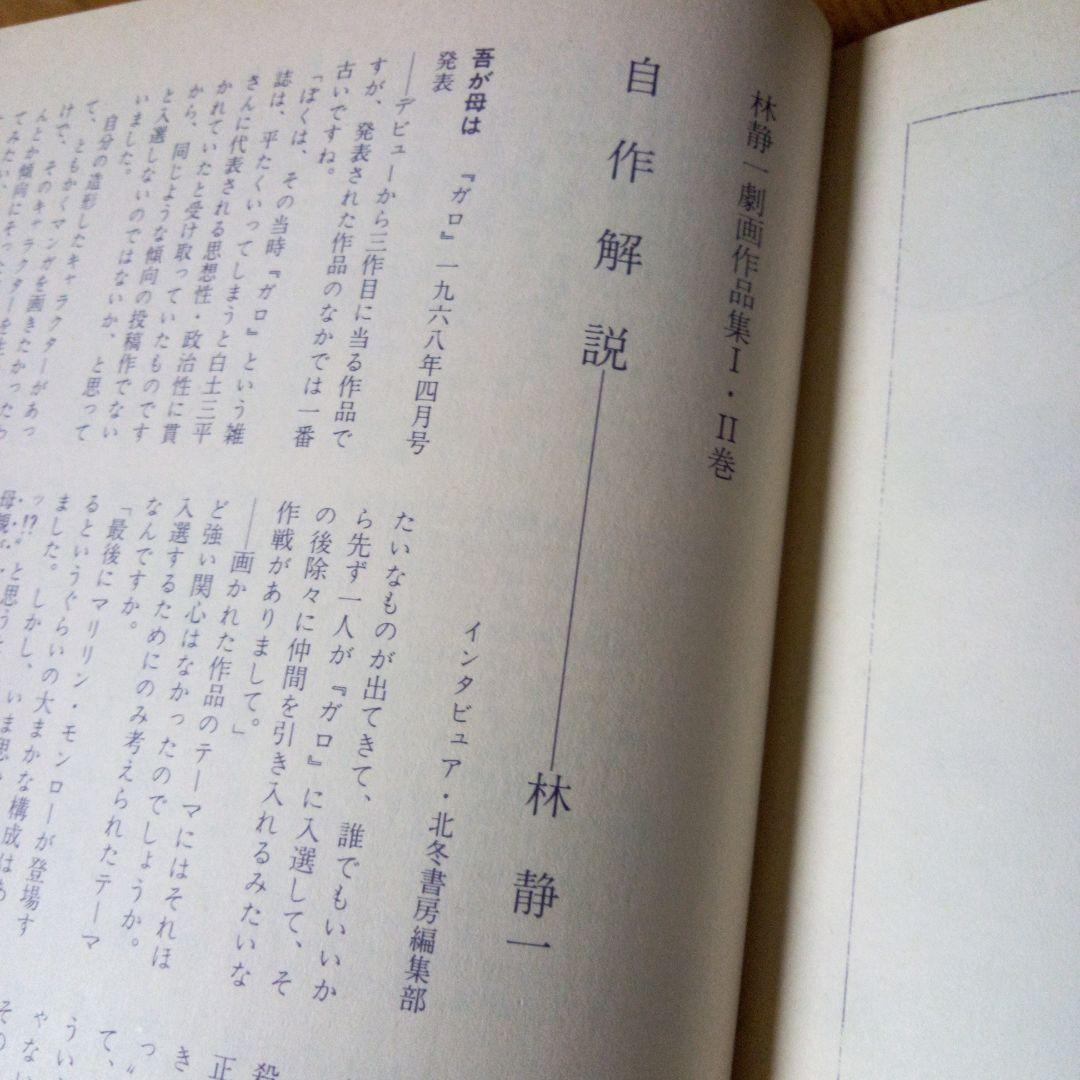 林静一劇画作品集Ⅰ・Ⅱ巻
自作解説――林 静一
インタビュア・北冬書房編集部
吾が母は 『ガロ』一九六八年四月号
発表
――デビューから三作目に当る作品で
すが、発表された作品のなかでは一番
古いですね。
「ぼくは、その当時『ガロ』という雑
誌は、平たくいってしまうと白土三平
さんに代表される思想性・政治性に貫
かれていたと受け取っていたものです
から、同じような傾向の投稿作でない
と入選しないのではないか、と思って
いました。
自分の造形したキャラクターがあっ
て、ともかくマンガを画きたかったわ
けで、そのキャラクターを
んとか傾向にそった
てみたい、
たいなものが出てきて、誰でもいいか
ら先ず一人が『ガロ』に入選して、そ
の後除々に仲間を引き入れるみたいな
作戦がありまして。」
――画かれた作品のテーマにはそれほ
ど強い関心はなかったのでしようか。
入選するためにのみ考えられたテーマ
なんですか。
「最後にマリリン・モンローが登場す
るというぐらいの大まかな構成はあ
ました。しかし、いま思
ッ!?〟と思うと
母親
殺
正
き
っ〟
て、
うい
ゃな
その